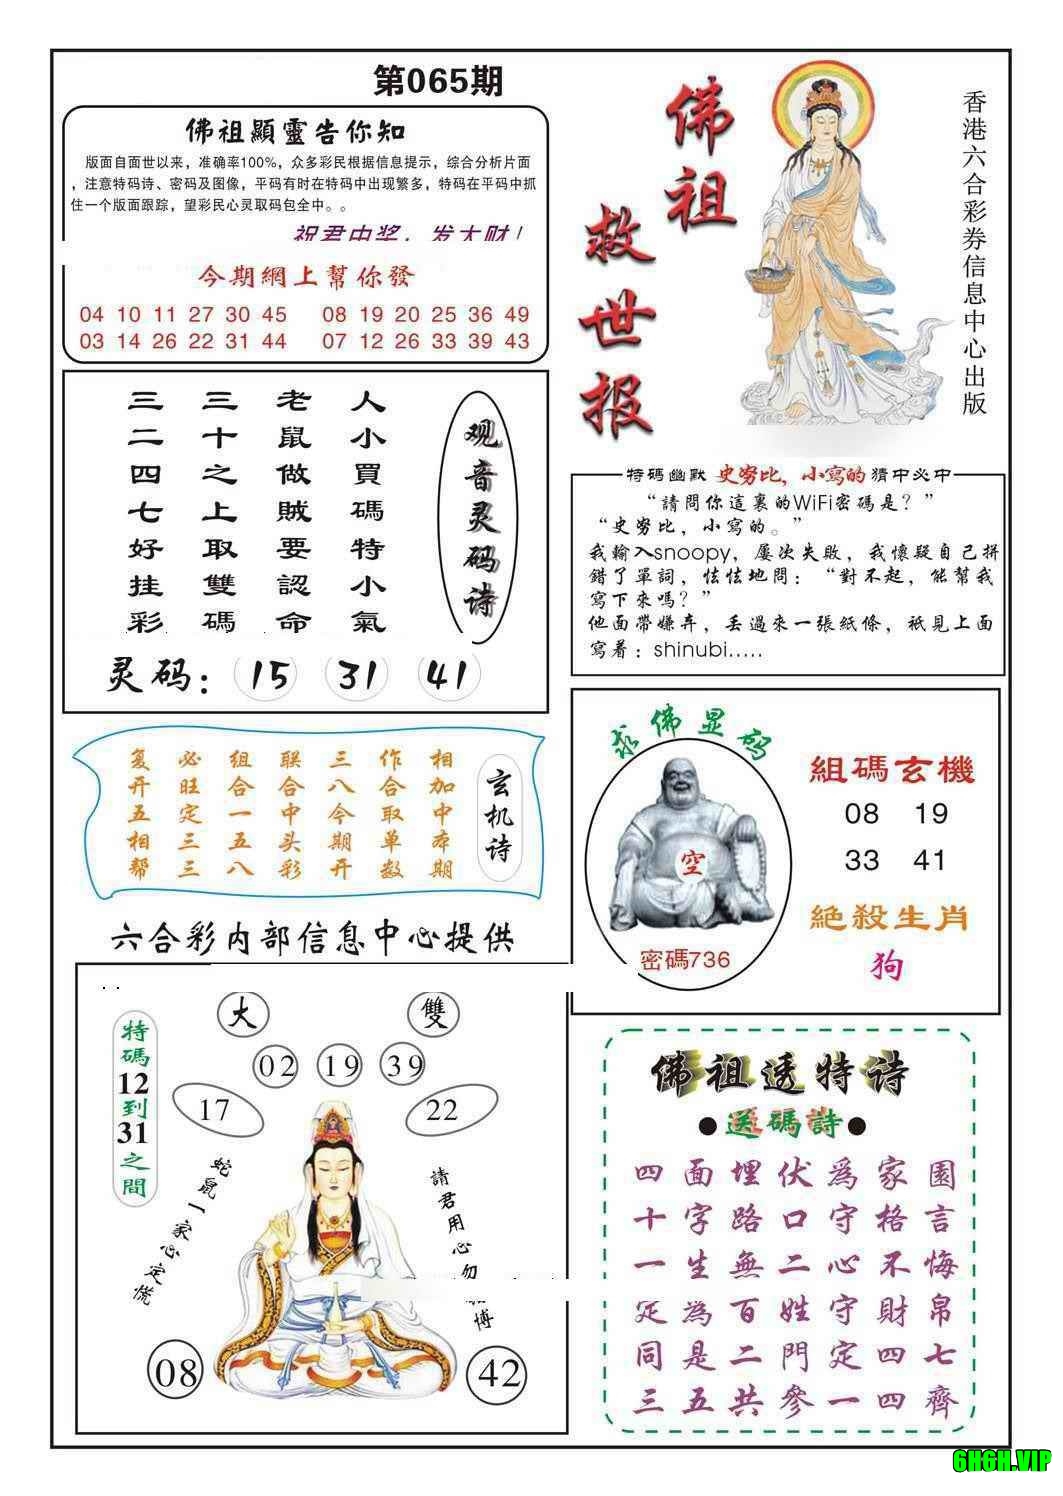 第065期
佛祖顯靈告你知
版面自面世以来，准确率100%，众多彩民根据信息提示，综合分析片面
，注意特码诗、密码及图像，平码有时在特码中出现繁多，特码在平码中抓
住一个版面跟踪，望彩民心灵取码包全中。。
祝君中奖，发大财！
今期網上幫你發
04 10 11 27 30 45 08 19 20 25 36 49
03 14 26 22 31 44 07 12 26 33 39 43
佛祖
救世报
香港六合彩券信息中心出版
观音灵码诗
人小買碼特小氣
老鼠做賊要認命
三十之上取雙碼
三二四七好挂彩
灵码：15 31 41
特碼幽默 史努比，小寫的 猜中必中
“請問你這裏的WiFi密碼是？”
“史努比，小寫的。”
我輸入snoopy，屢次失敗，我懷疑自己拼
錯了單詞，怯怯地問：“對不起，能幫我
寫下來嗎？”
他面帶嫌弃，丢過來一張紙條，衹見上面
寫着：shinubi.....
玄机诗
相加中本期
作合取单数
三八今期开
联合中头彩
组合一五八
必旺定三三
复开五相帮
求佛显码
空
密碼736
組碼玄機
08 19
33 41
絕殺生肖
狗
六合彩内部信息中心提供
特碼12到31之間
大 雙
02 19 39
17 22
蛇鼠一家心定慌
請君用心勿
博
08 42
佛祖透特诗
●送碼詩●
四面埋伏爲家園
十字路口守格言
一生無二心不悔
定為百姓守財帛
同是二門定四七
三五共參一四齊
6H6H.VIP